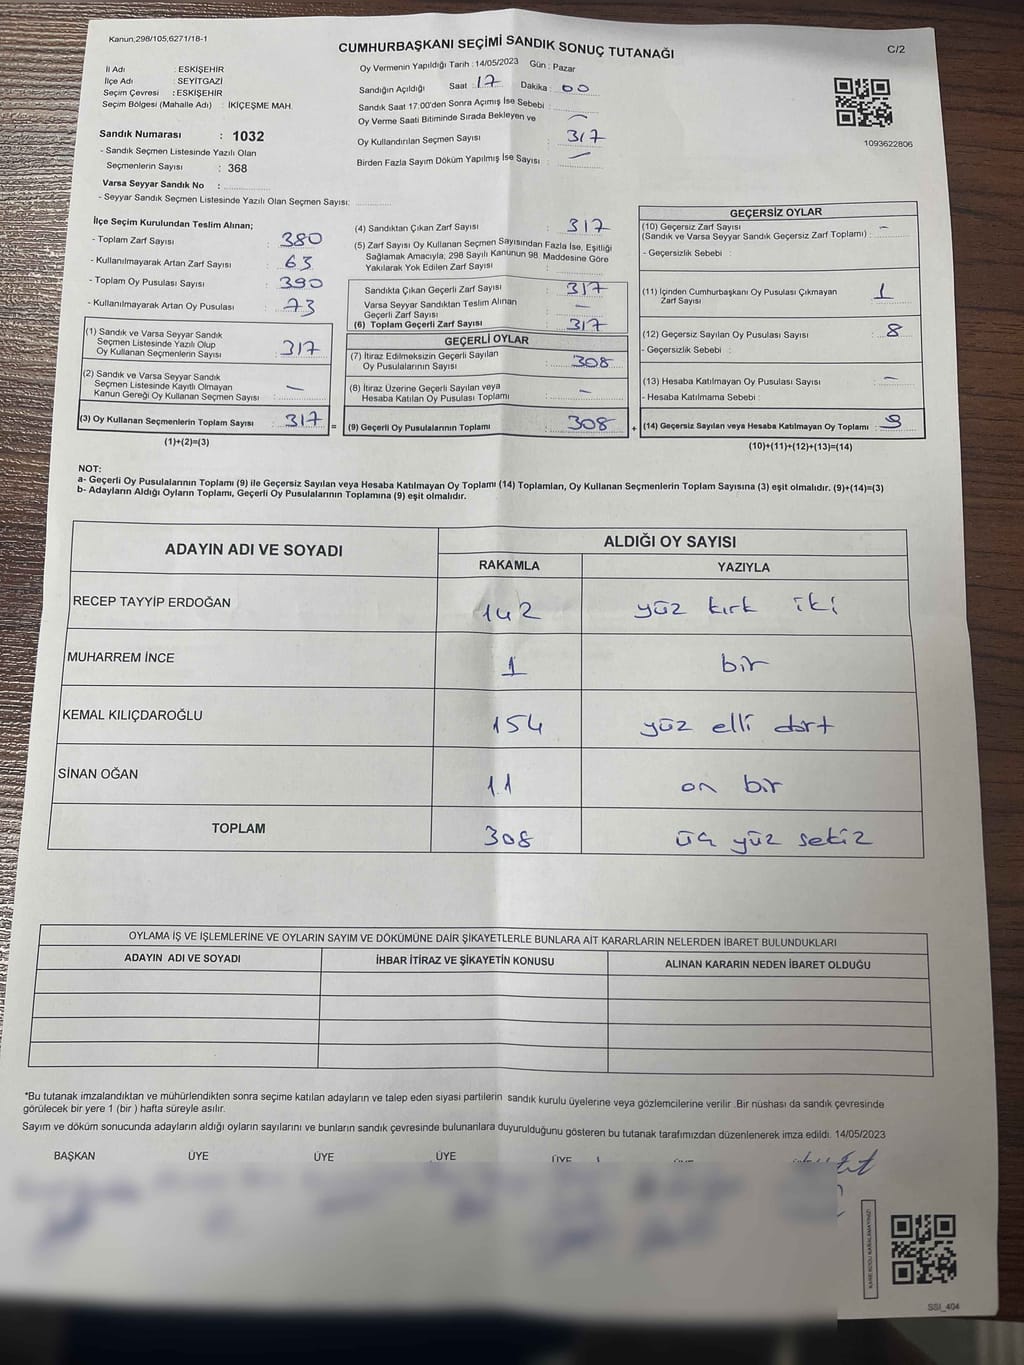 Kanun;298/105,6271/18-1
CUMHURBAŞKANI SEÇİMİ SANDIK SONUÇ TUTANAĞI
C/2
İl Adı : ESKİŞEHİR
İlçe Adı : SEYİTGAZİ
Seçim Çevresi : ESKİŞEHİR
Seçim Bölgesi (Mahalle Adı) : İKİÇEŞME MAH.
Sandık Numarası : 1032
- Sandık Seçmen Listesinde Yazılı Olan
Seçmenlerin Sayısı : 368
Varsa Seyyar Sandık No :
- Seyyar Sandık Seçmen Listesinde Yazılı Olan Seçmen Sayısı:
Oy Vermenin Yapıldığı Tarih : 14/05/2023 Gün : Pazar
Sandığın Açıldığı Saat : 17 Dakika : 00
Sandık Saat 17:00'den Sonra Açımış İse Sebebi :
Oy Verme Saati Bitiminde Sırada Bekleyen ve
Oy Kullandırılan Seçmen Sayısı : 317
Birden Fazla Sayım Döküm Yapılmış İse Sayısı : —
1093622806
İlçe Seçim Kurulundan Teslim Alınan;
- Toplam Zarf Sayısı : 380
- Kullanılmayarak Artan Zarf Sayısı : 63
- Toplam Oy Pusulası Sayısı : 390
- Kullanılmayarak Artan Oy Pusulası : 73
(1) Sandık ve Varsa Seyyar Sandık
Seçmen Listesinde Yazılı Olup
Oy Kullanan Seçmenlerin Sayısı : 317
(2) Sandık ve Varsa Seyyar Sandık
Seçmen Listesinde Kayıtlı Olmayan
Kanun Gereği Oy Kullanan Seçmen Sayısı : —
(3) Oy Kullanan Seçmenlerin Toplam Sayısı : 317 =
(1)+(2)=(3)
(4) Sandıktan Çıkan Zarf Sayısı : 317
(5) Zarf Sayısı Oy Kullanan Seçmen Sayısından Fazla İse, Eşitliği
Sağlamak Amacıyla; 298 Sayılı Kanunun 98. Maddesine Göre
Yakılarak Yok Edilen Zarf Sayısı :
Sandıkta Çıkan Geçerli Zarf Sayısı : 317
Varsa Seyyar Sandıktan Teslim Alınan
Geçerli Zarf Sayısı : —
(6) Toplam Geçerli Zarf Sayısı : 317
GEÇERLİ OYLAR
(7) İtiraz Edilmeksizin Geçerli Sayılan
Oy Pusulalarının Sayısı : 308
(8) İtiraz Üzerine Geçerli Sayılan veya
Hesaba Katılan Oy Pusulası Toplamı : —
(9) Geçerli Oy Pusulalarının Toplamı : 308 +
GEÇERSİZ OYLAR
(10) Geçersiz Zarf Sayısı —
(Sandık ve Varsa Seyyar Sandık Geçersiz Zarf Toplamı) :
- Geçersizlik Sebebi :
(11) İçinden Cumhurbaşkanı Oy Pusulası Çıkmayan
Zarf Sayısı : 1
(12) Geçersiz Sayılan Oy Pusulası Sayısı : 8
- Geçersizlik Sebebi :
(13) Hesaba Katılmayan Oy Pusulası Sayısı : —
- Hesaba Katılmama Sebebi :
(14) Geçersiz Sayılan veya Hesaba Katılmayan Oy Toplamı : 9
(10)+(11)+(12)+(13)=(14)
NOT:
a- Geçerli Oy Pusulalarının Toplamı (9) ile Geçersiz Sayılan veya Hesaba Katılmayan Oy Toplamı (14) Toplamları, Oy Kullanan Seçmenlerin Toplam Sayısına (3) eşit olmalıdır. (9)+(14)=(3)
b- Adayların Aldığı Oyların Toplamı, Geçerli Oy Pusulalarının Toplamına (9) eşit olmalıdır.
ADAYIN ADI VE SOYADI
ALDIĞI OY SAYISI
RAKAMLA YAZIYLA
RECEP TAYYİP ERDOĞAN 142 yüz kırk iki
MUHARREM İNCE 1 bir
KEMAL KILIÇDAROĞLU 154 yüz elli dört
SİNAN OĞAN 11 on bir
TOPLAM 308 üç yüz sekiz
OYLAMA İŞ VE İŞLEMLERİNE VE OYLARIN SAYIM VE DÖKÜMÜNE DAİR ŞİKAYETLERLE BUNLARA AİT KARARLARIN NELERDEN İBARET BULUNDUKLARI
ADAYIN ADI VE SOYADI İHBAR İTİRAZ VE ŞİKAYETİN KONUSU ALINAN KARARIN NEDEN İBARET OLDUĞU
*Bu tutanak imzalandıktan ve mühürlendikten sonra seçime katılan adayların ve talep eden siyasi partilerin sandık kurulu üyelerine veya gözlemcilerine verilir .Bir nüshası da sandık çevresinde
görülecek bir yere 1 (bir ) hafta süreyle asılır.
Sayım ve döküm sonucunda adayların aldığı oyların sayılarını ve bunların sandık çevresinde bulunanlara duyurulduğunu gösteren bu tutanak tarafımızdan düzenlenerek imza edildi. 14/05/2023
BAŞKAN ÜYE ÜYE ÜYE ÜYE
SSI_404